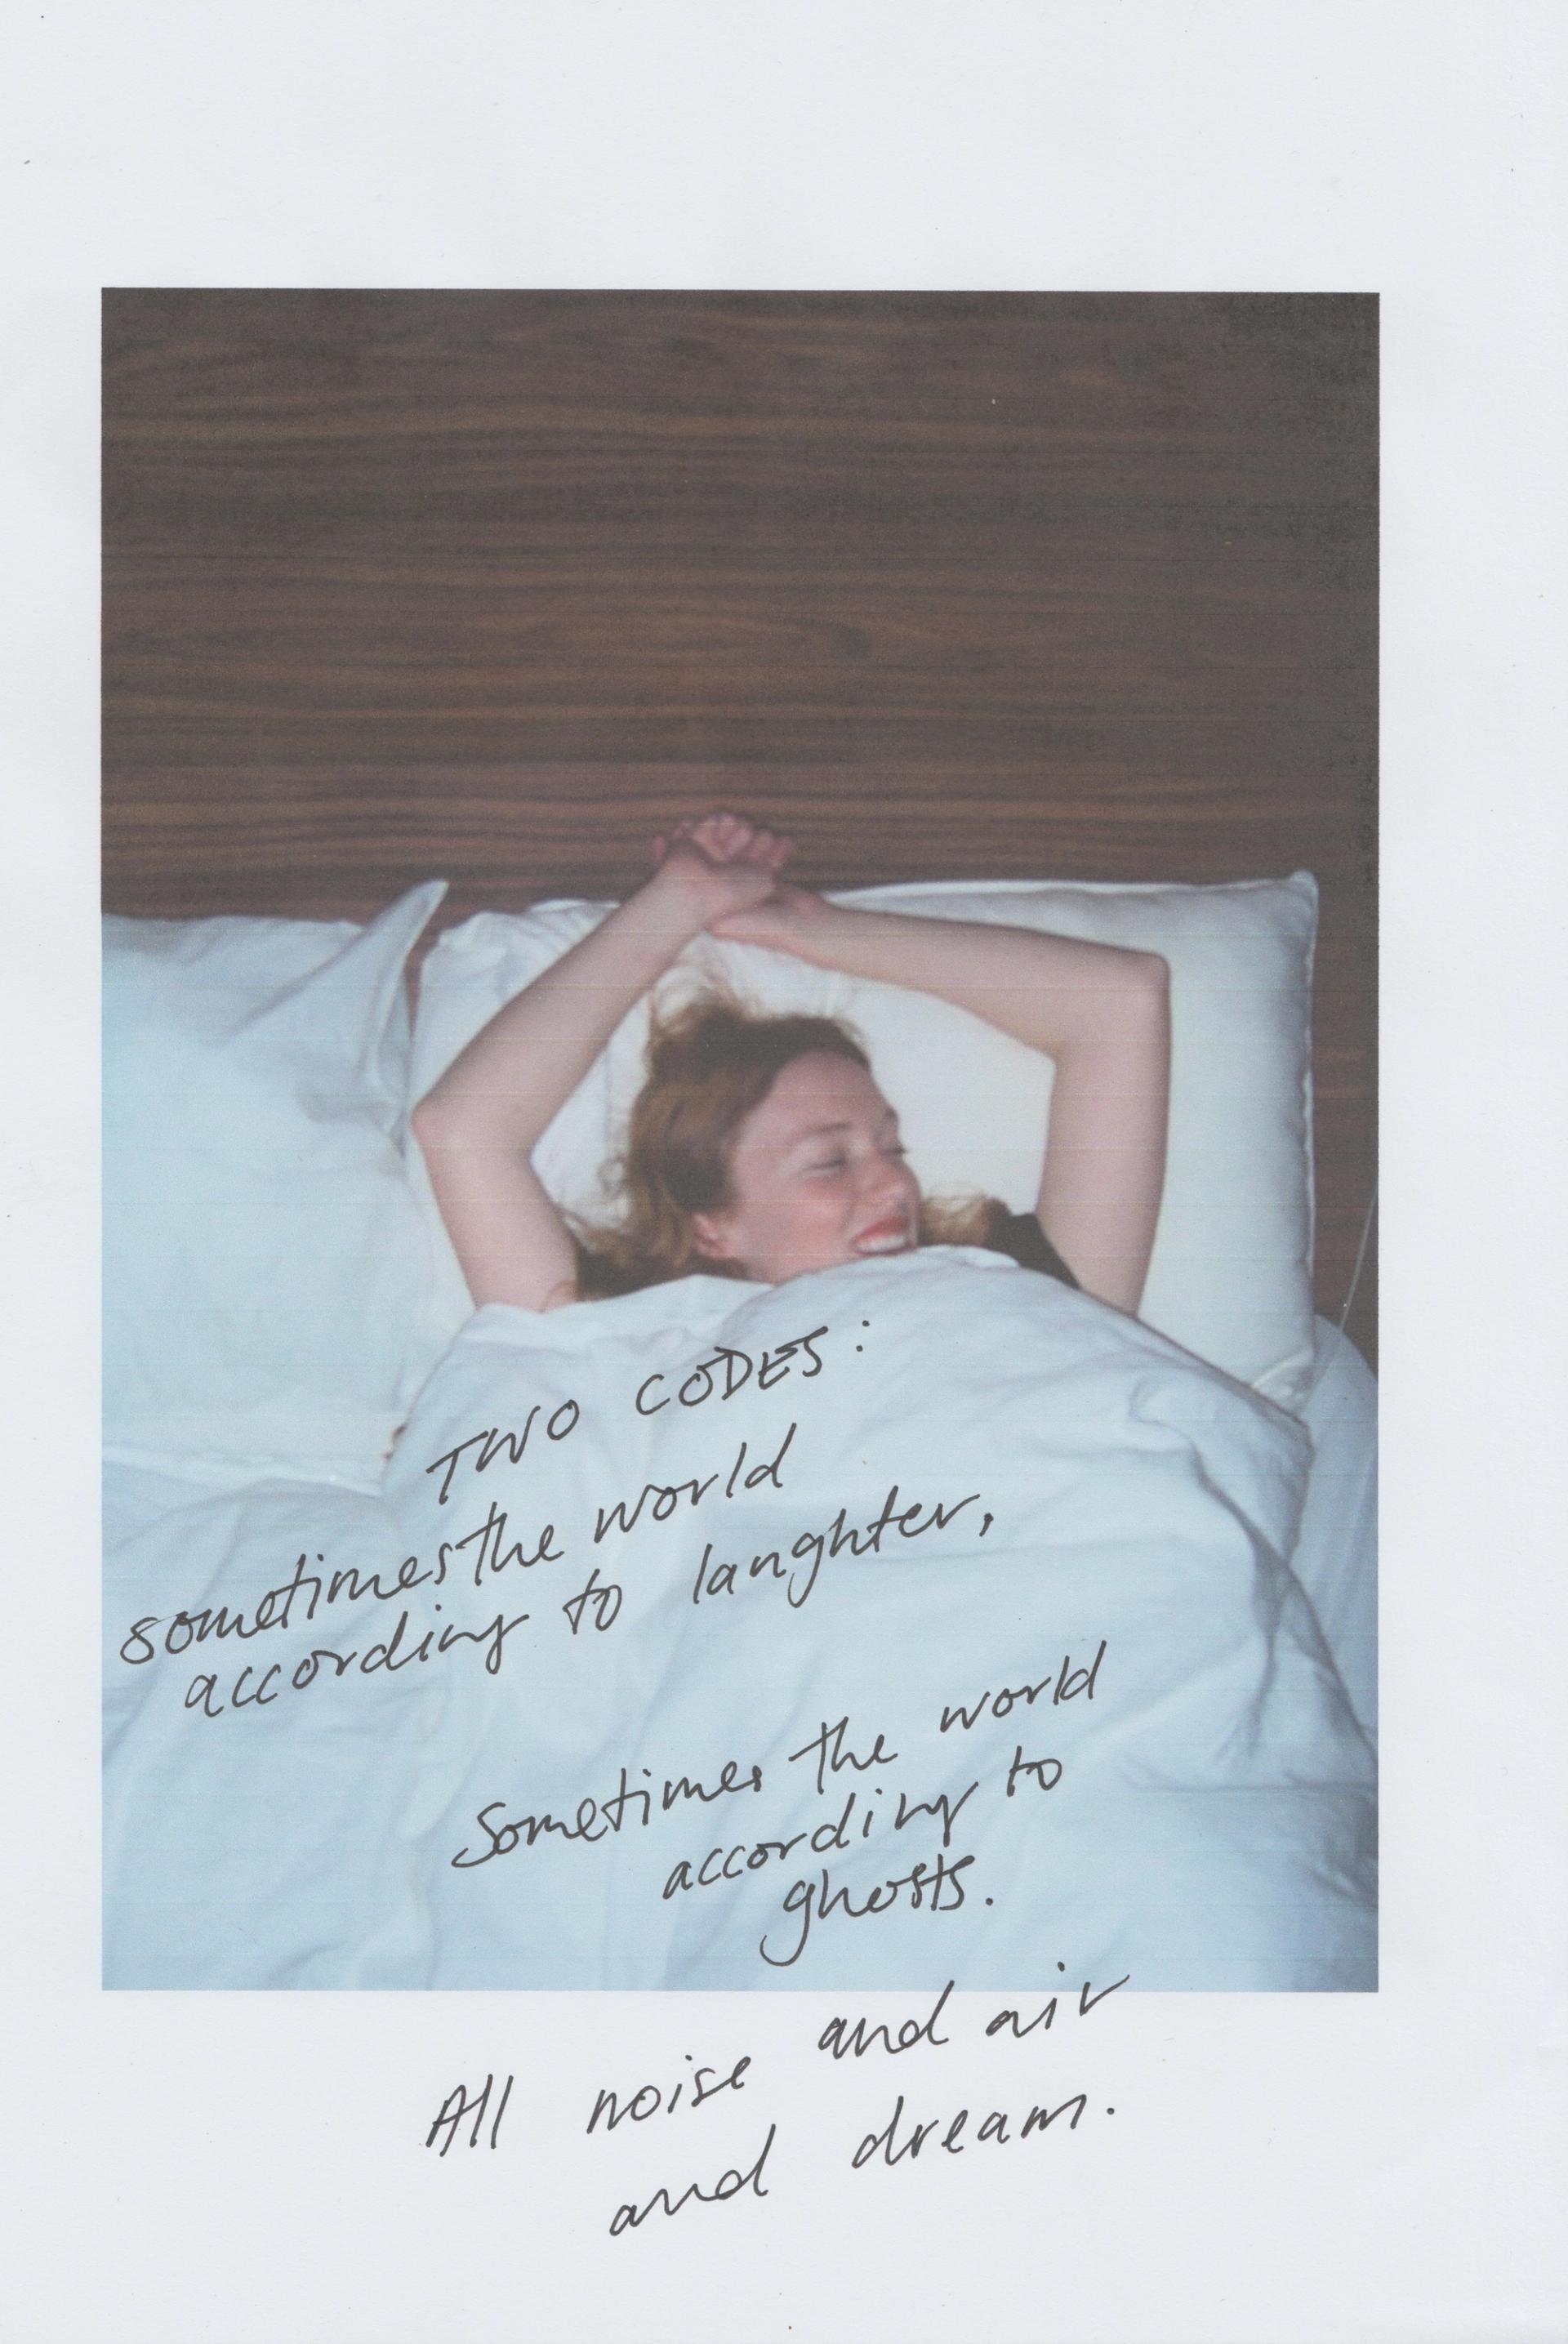 TWO CODES:
sometimes the world
according to laughter,
Sometimes the world
according to
ghosts.
All noise and air
and dream.